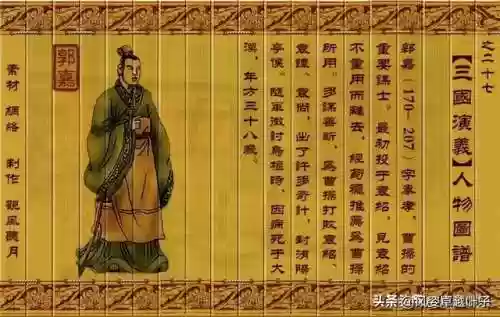 之二十七
【三國演義】人物圖譜
郭嘉（170-207）字奉孝，曹操的
重要謀士。最初投于袁紹，見袁紹
不重用而離去，經荀彧推薦爲曹操
所用。多謀善斷，爲曹操打敗袁紹、
袁譚、袁尚，出了許多奇計，封洧陽
亭侯。隨軍徵討烏桓時，因病死于大
漠，年方三十八歲。
郭嘉
素材 網絡 制作 觀風聽月
头条 卓越叶子